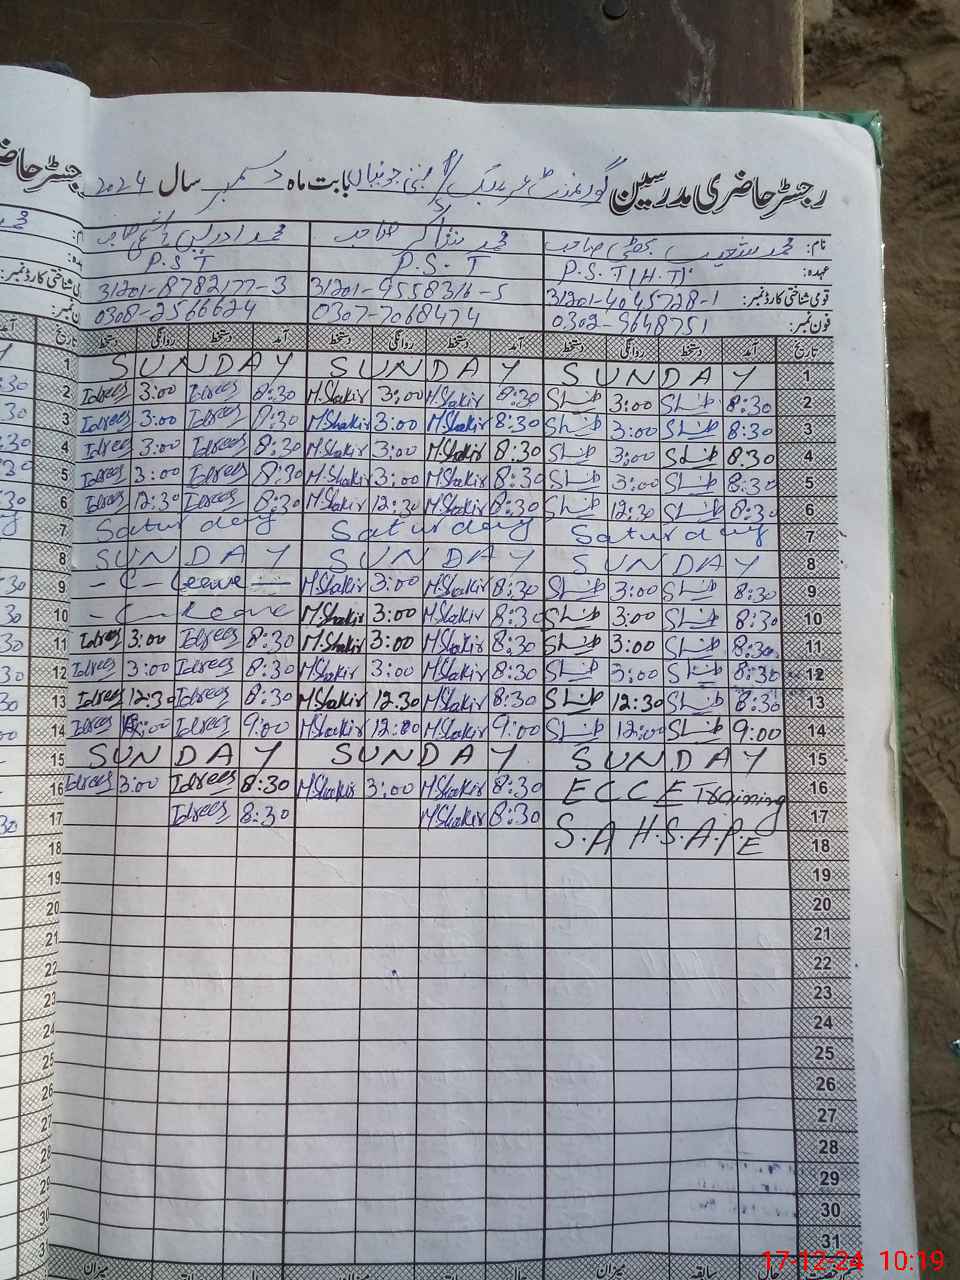 رجسٹر حاضری مدرسین گورنمنٹ بابت ماہ دسمبر سال 2024
نام: محمد شعیب بھٹی صاحب محمد شاکر صاحب محمد ادریس صاحب
عہدہ: P.S.T (H.T) P.S.T P.S.T
قومی شناختی کارڈ نمبر: 31201-4045728-1 31201-9558316-5 31201-8782177-3
فون نمبر: 0302-9648751 0307-7068474 0308-2566624
تاریخ آمد دستخط روانگی دستخط آمد دستخط روانگی دستخط آمد دستخط روانگی دستخط
1 SUNDAY SUNDAY SUNDAY 1
2 Idrees 3:00 Idrees 8:30 M.Shakir 3:00 M.Shakir 8:30 3:00 8:30 2
3 Idrees 3:00 Idrees 8:30 M.Shakir 3:00 M.Shakir 8:30 3:00 8:30 3
4 Idrees 3:00 Idrees 8:30 M.Shakir 3:00 M.Shakir 8:30 3:00 8:30 4
5 Idrees 3:00 Idrees 8:30 M.Shakir 3:00 M.Shakir 8:30 3:00 8:30 5
6 Idrees 12:30 Idrees 8:30 M.Shakir 12:30 M.Shakir 8:30 12:30 8:30 6
7 Saturday Saturday Saturday 7
8 SUNDAY SUNDAY SUNDAY 8
9 - C - Leave M.Shakir 3:00 M.Shakir 8:30 3:00 8:30 9
10 - C - Leave M.Shakir 3:00 M.Shakir 8:30 3:00 8:30 10
11 Idrees 3:00 Idrees 8:30 M.Shakir 3:00 M.Shakir 8:30 3:00 8:30 11
12 Idrees 3:00 Idrees 8:30 M.Shakir 3:00 M.Shakir 8:30 3:00 8:30 12
13 Idrees 12:30 Idrees 8:30 M.Shakir 12:30 M.Shakir 8:30 12:30 8:30 13
14 Idrees Idrees 9:00 M.Shakir 12:00 M.Shakir 9:00 12:00 9:00 14
15 SUNDAY SUNDAY SUNDAY 15
16 Idrees 3:00 Idrees 8:30 M.Shakir 3:00 M.Shakir 8:30 ECCE Training 16
17 Idrees 8:30 M.Shakir 8:30 S.A H.S.A.P.E 17
18 18
19 19
20 20
21 21
22 22
23 23
24 24
25 25
26 26
27 27
28 28
29 29
30 30
31
میزان سابقہ میزان
17-12-24 10:19